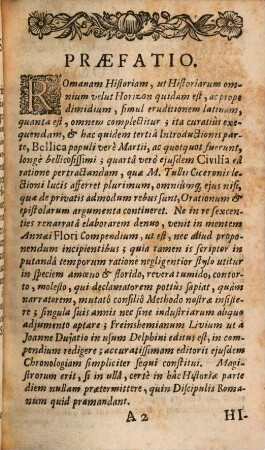 PRÆFATIO.
ROmanam Historiam, ut Historiarum om-
nium velut Horizon quidam est, ac prope
dimidium, simul eruditionem latinam,
quanta est, omnem complectitur; ita curatiùs exe-
quendam, & hac quidem tertiâ Introductionis par-
te, Bellica populi verè Martii, ac quotquot fuerunt,
longè bellicosissimi; quartâ verò ejusdem Civilia eâ
ratione pertractandam, quæ M. Tullii Ciceronis le-
ctioni lucis afferret plurimum, omniumq́; ejus nisi,
quæ de privatis admodum rebus sunt, Orationum &
epistolarum argumenta contineret. Ne in re sexcen-
ties renarratâ elaborarem denuo, venit in mentem
Annæi Flori Compendium, ut est, nec aliud propo-
nendum incipientibus; quia tamen is scriptor in pu-
tandâ temporum ratione negligentior stylo utitur
in speciem amœno & florido, reverâ tumido, contor-
to, molesto, qui declamatorem potiùs sapiat, quàm
narratorem, mutatô consiliô Methodo nostræ insiste-
re; & singula suis annis nec sine industriarum aliquo
adjumento aptare; & Freinshemianum Livium ut à
Joanne Dujatio in usum Delphini editus est, in com-
pendium redigere; accuratissimam editoris ejusdem
Chronologiam simpliciter sequi constitui. Magi-
strorum erit, si in ullâ, certè in hâc Historiæ parte
diem nullam prætermittere, quin Discipulis Roma-
num quid præmandant.
A 2 HI-